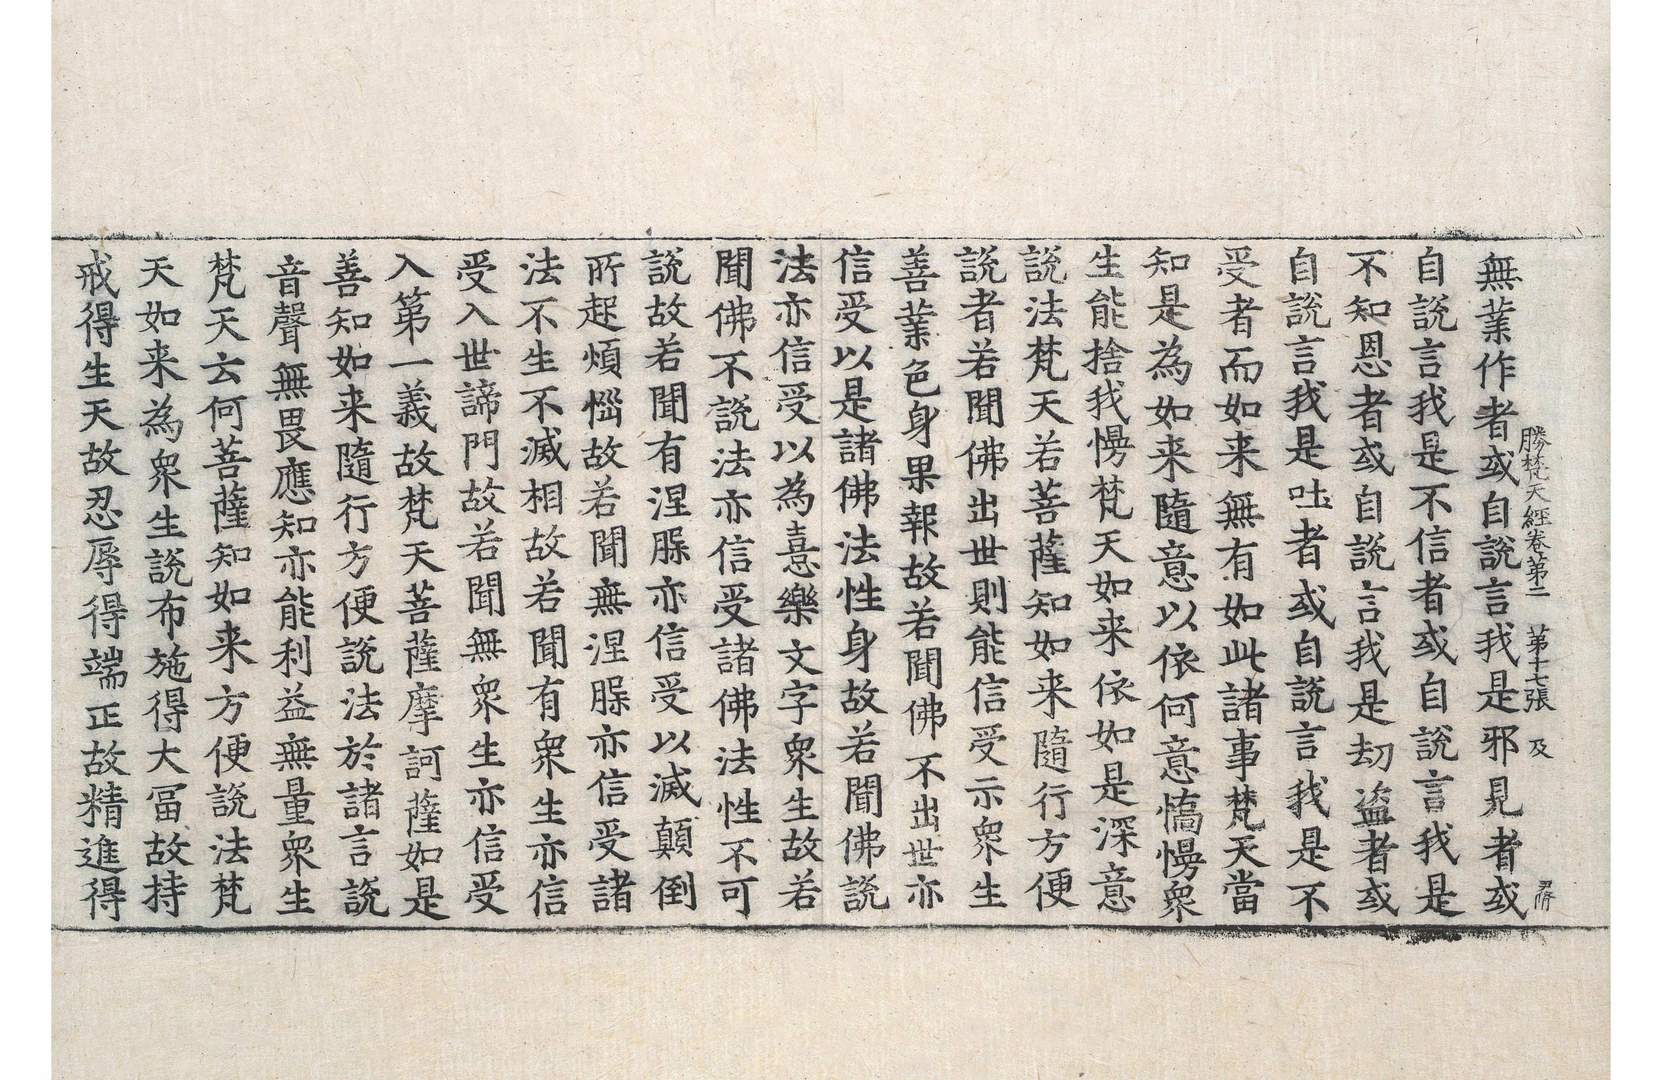 勝梵天經卷第二　第十七張　及
無業作者或自說言我是邪見者或
自說言我是不信者或自說言我是
不知恩者或自說言我是刧盜者或
自說言我是吐者或自說言我是不
受者而如来無有如此諸事梵天當
知是為如来隨意以依何意憍慢衆
生能捨我慢梵天如来依如是深意
說法梵天若菩薩知如来隨行方便
說者若聞佛出世則能信受示衆生
善業色身果報故若聞佛不出世亦
信受以是諸佛法性身故若聞佛說
法亦信受以為憙樂文字衆生故若
聞佛不說法亦信受諸佛法性不可
說故若聞有涅脲亦信受以滅顛倒
所起煩惱故若聞無涅脲亦信受諸
法不生不滅相故若聞有衆生亦信
受入世諦門故若聞無衆生亦信受
入第一義故梵天菩薩摩訶薩如是
善知如来隨行方便說法於諸言說
音聲無畏應知亦能利益無量衆生
梵天云何菩薩知如来方便說法梵
天如来為衆生說布施得大富故持
戒得生天故忍辱得端正故精進得